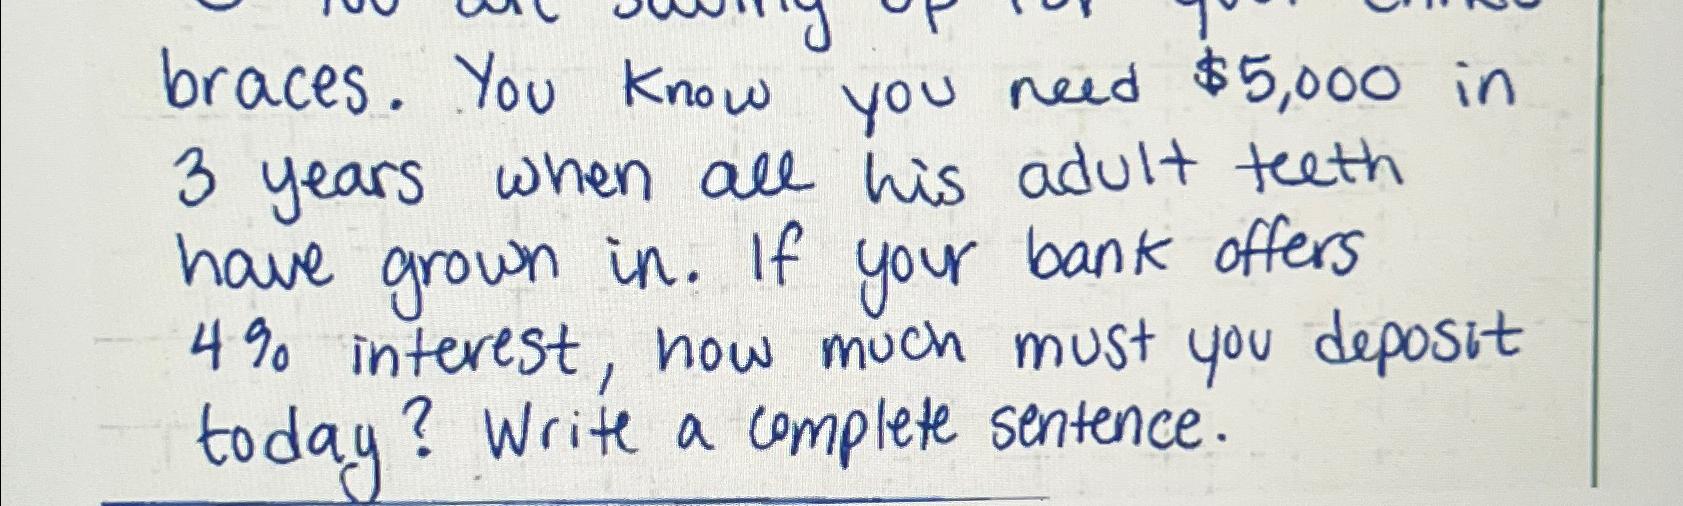 saving up for your
braces. You know you need $5,000 in
3 years when all his adult teeth
have grown in. If your bank offers
4% interest, how much must you deposit
today? Write a complete sentence.